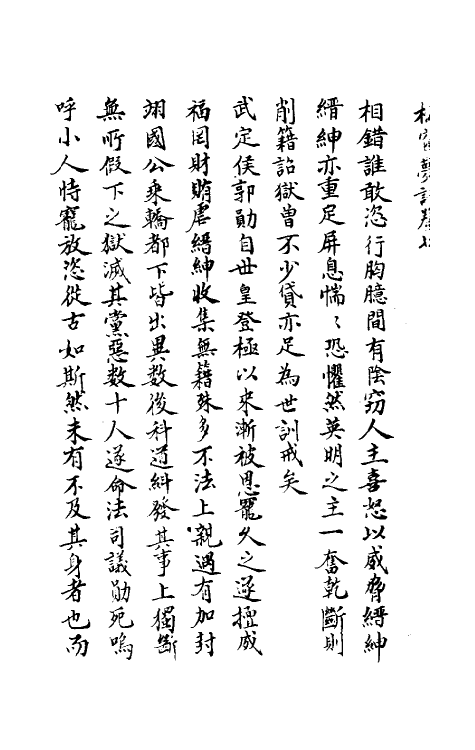 松窗夢語卷七
相錯誰敢恣行胸臆間有陰窃人主喜怒以威脅縉紳
縉紳亦重足屏息惴〻恐懼然英明之主一奮乾斷則
削籍詔獄曾不少貸亦足為世訓戒矣
武定侯郭勛自世皇登極以來漸被恩寵久之遂擅威
福罔財賄虐縉紳收集無籍殊多不法上親遇有加封
翊國公乘轎都下皆出異數後科道糾發其事上獨斷
無所假下之獄滅其黨惡数十人遂命法司議勛死嗚
呼小人恃寵放恣從古如斯然未有不及其身者也而